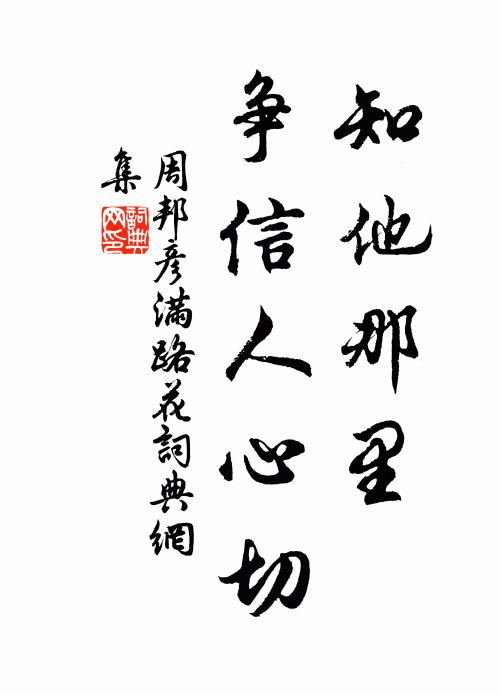 知他那里
争信人心切
周邦彦满路花詞典網
集
詞典
网印